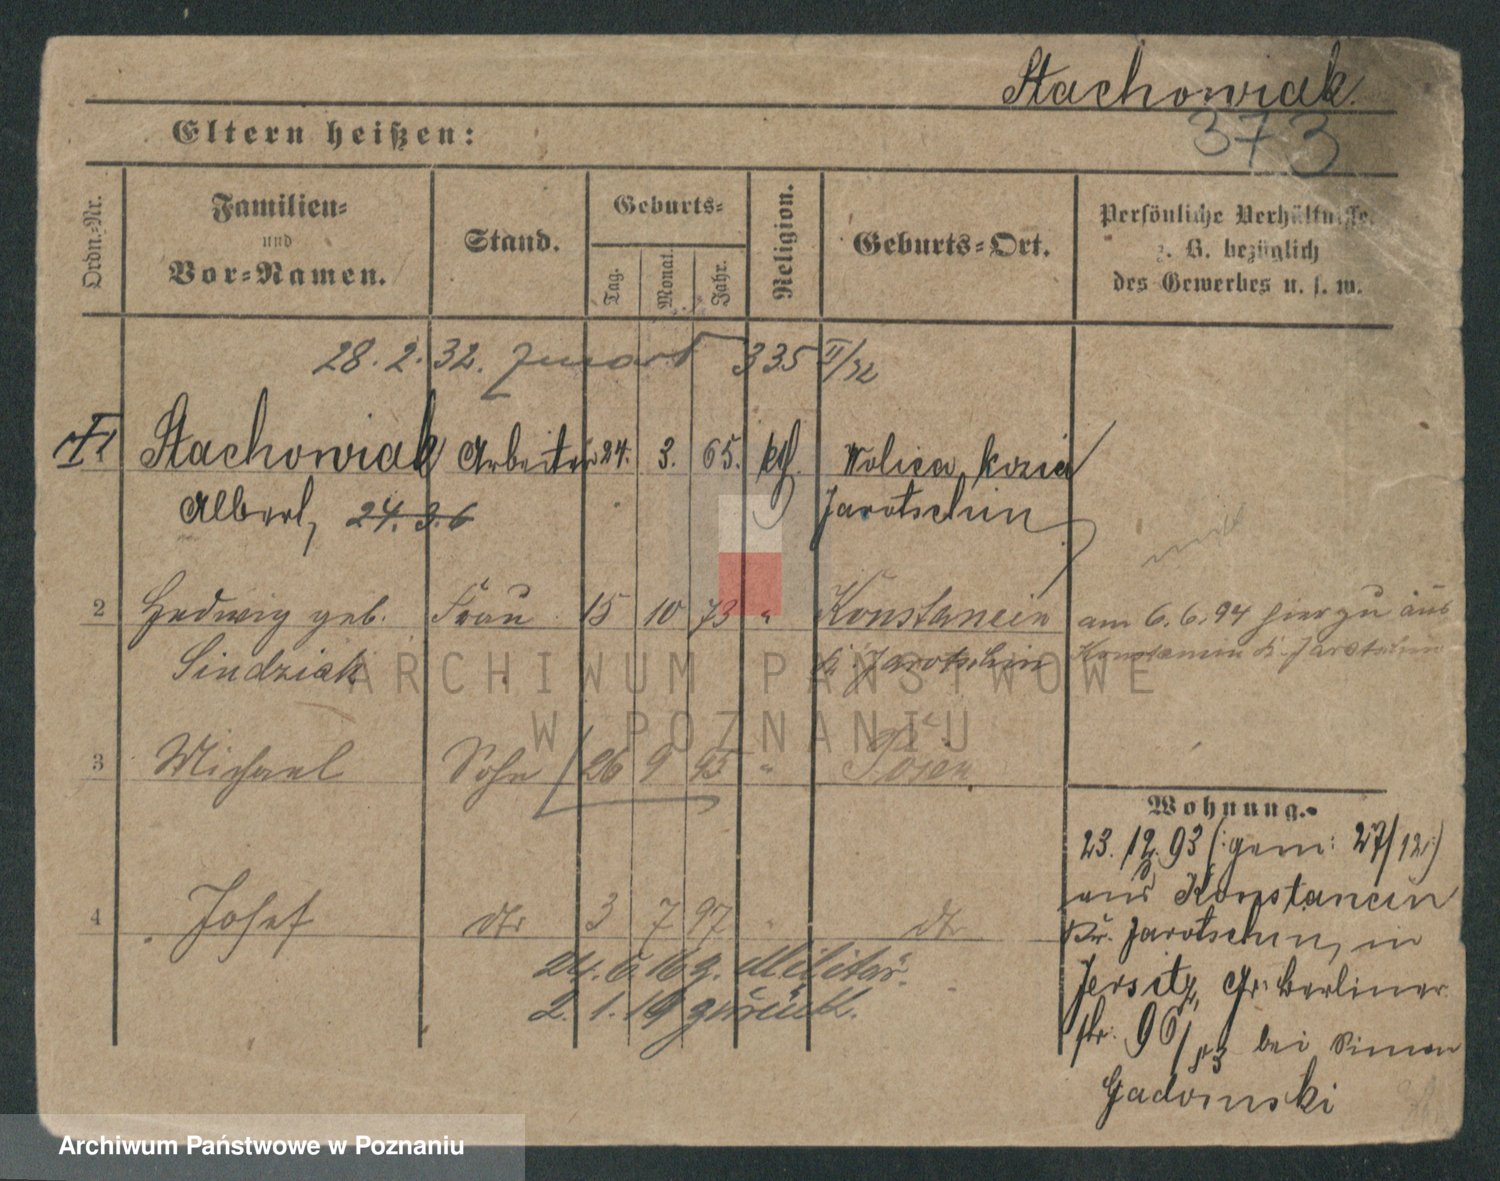 Stachowiak
373
Eltern heißen:
Ordn.-Nr.
Familien-
und
Vor-Namen.
Stand.
Geburts-
Tag.
Monat.
Jahr.
Religion.
Geburts-Ort.
Persönliche Verhältnisse,
z. B. bezüglich
des Gewerbes u. s. w.
28. 2. 32. 335 II/32
1 Stachowiak Arbeiter 24. 3. 65. kth. Wolica kozia
Albert, 24. 3. 6 Jarotschin
2 Hedwig geb. Frau 15 10 73 " Konstancin am 6. 6. 94 hierzu aus
Sindziak K. Jarotschin Konstancin K. Jarotschin
3 Michael Sohn 26 9 95 " Posen
4 Josef dto 3 7 97 " dto
24. 6. 16 z. Militär.
2. 1. 19 zurück.
Wohnung.
23. 12. 93 (: gem: 27/12 :)
aus Konstancin
Kr. Jarotschin, in
Jersitz, Gr. Berliner
str. 96/ bei Simon
Gadomski
ARCHIWUM PAŃSTWOWE
W POZNANIU
Archiwum Państwowe w Poznaniu